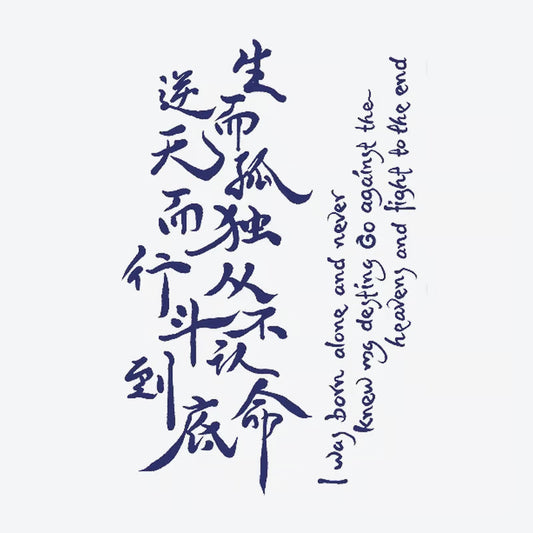 生而孤独从不认命
逆天而行斗到底
I was born alone and never
knew my destiny Go against the
heavens and fight to the end